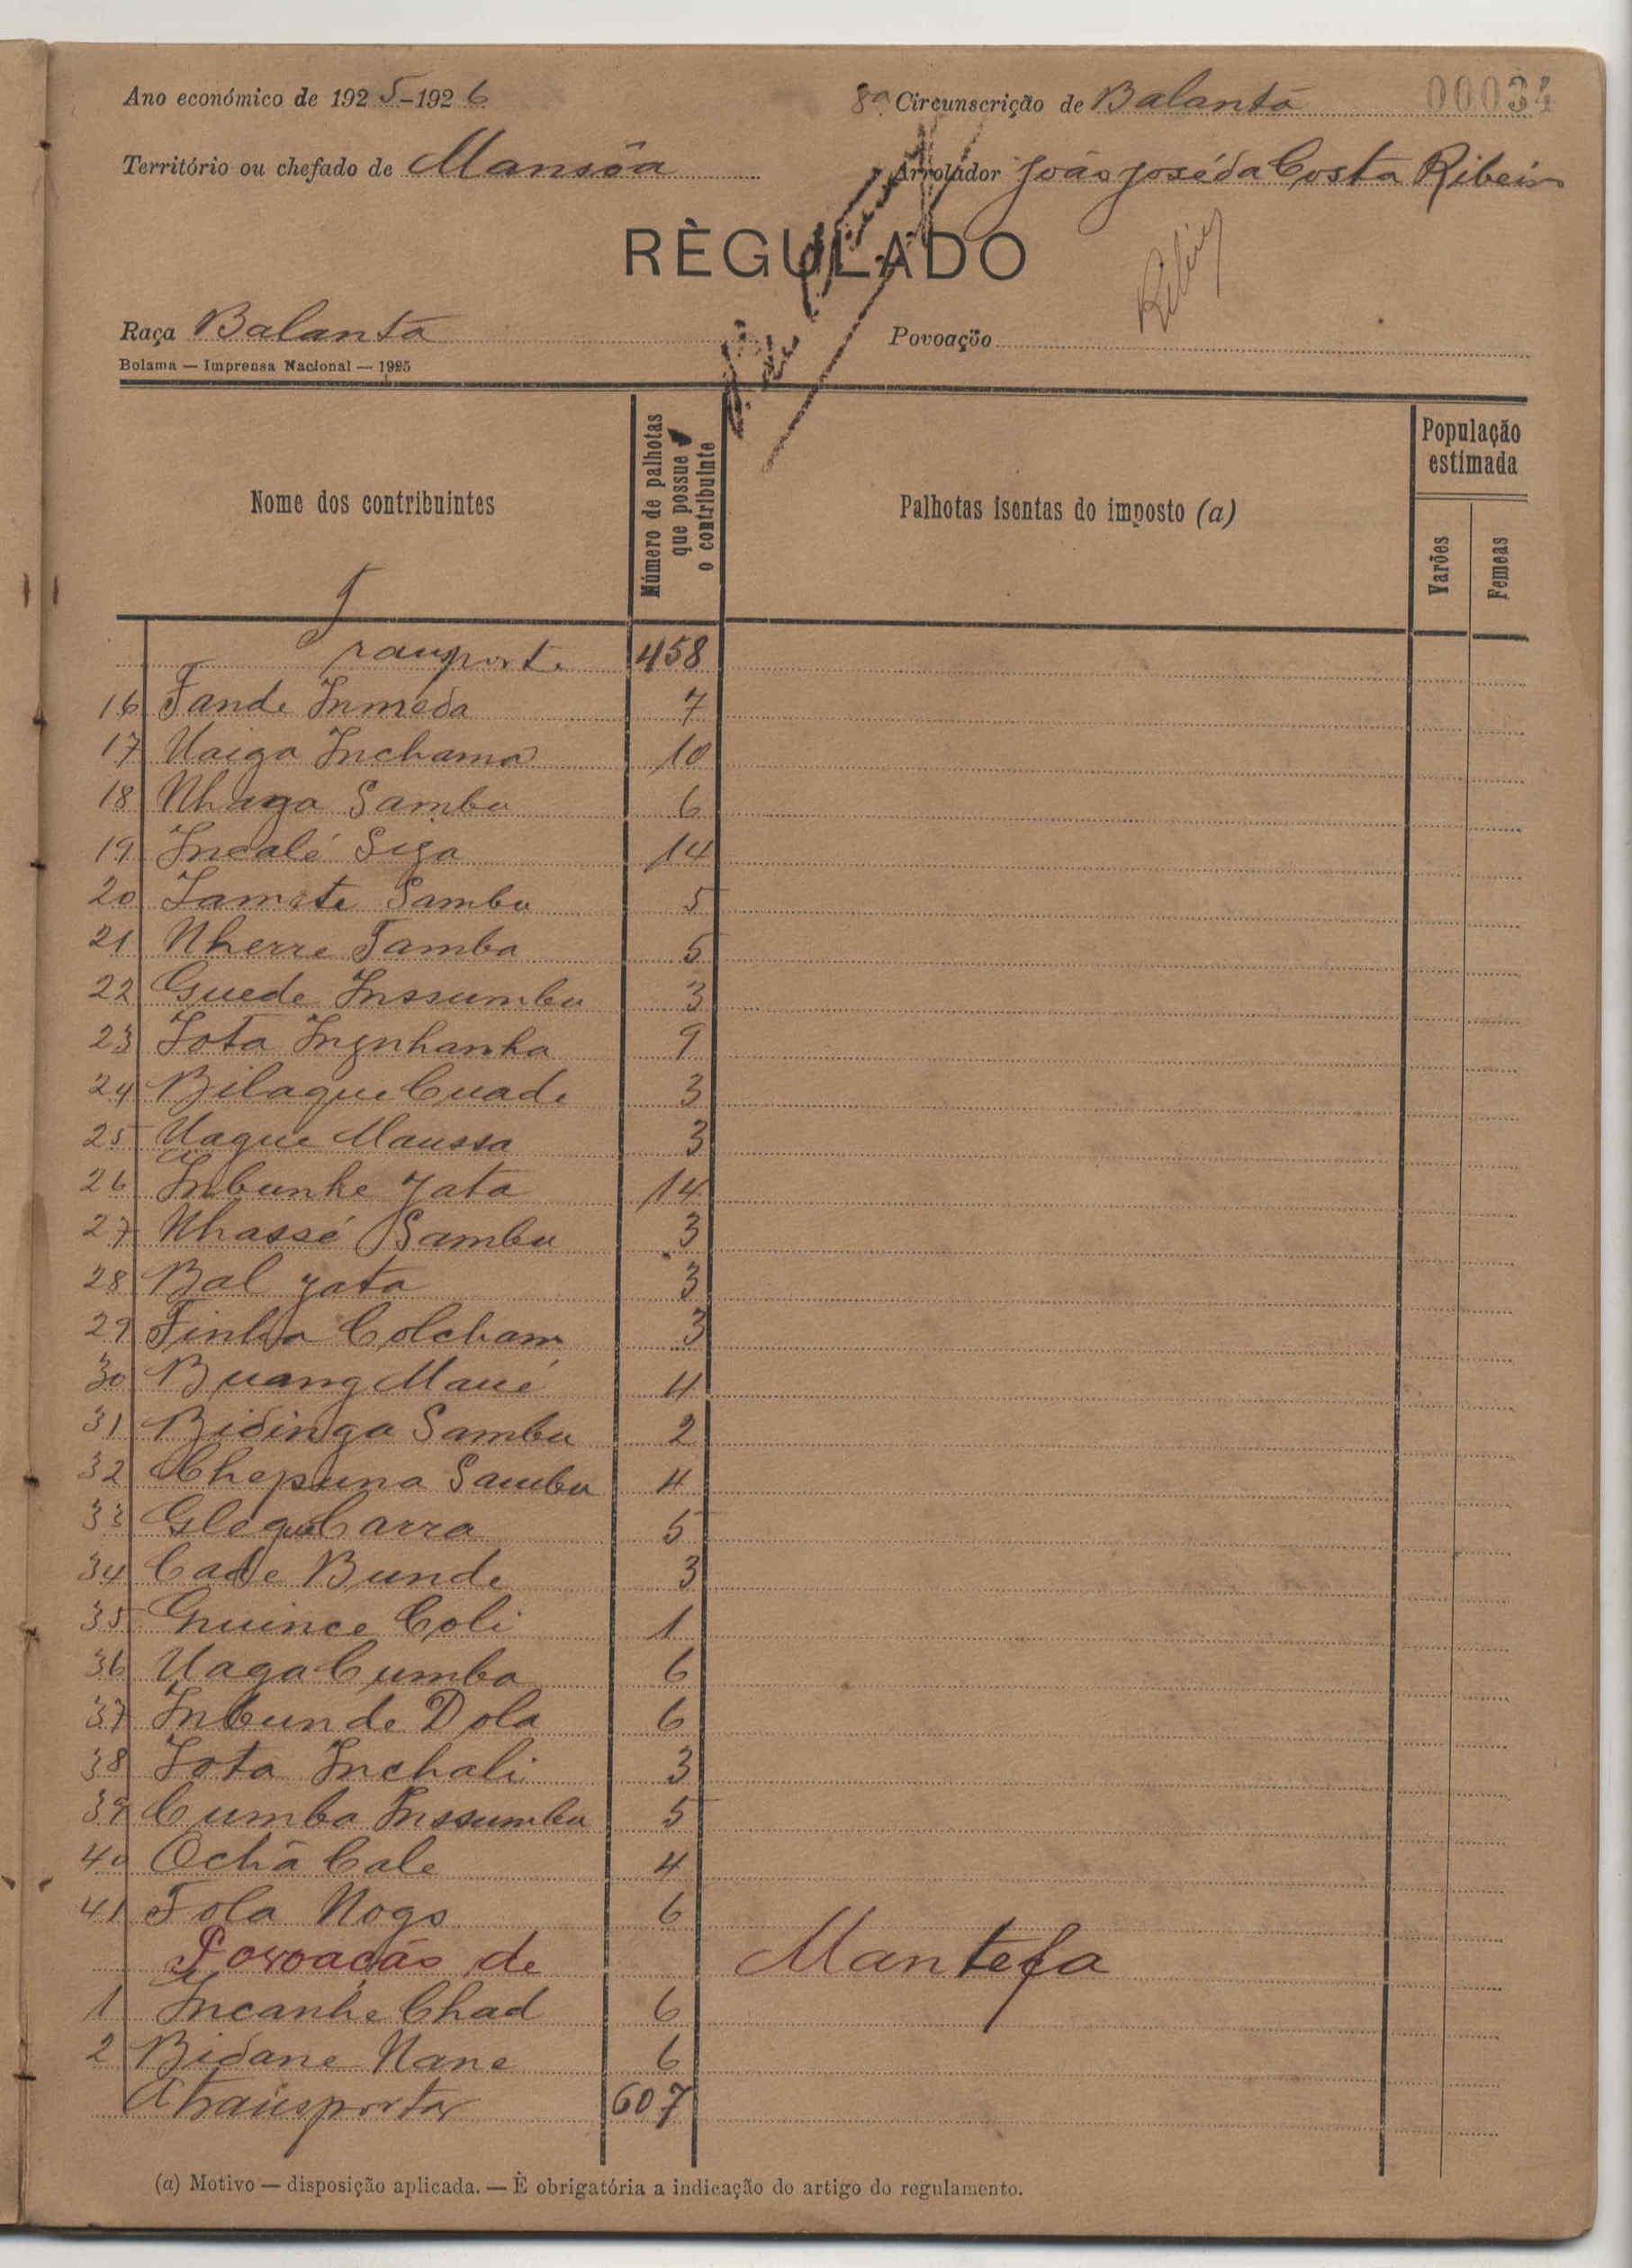 Ano económico de 1925-1926
8ª Circunscrição de Balanta
00034
Território ou chefado de Mansôa
Arrolador João José da Costa Ribeiro
RÈGULADO
Raça Balanta
Povoação
Bolama — Imprensa Nacional — 1925
Nome dos contribuintes
Número de palhotas que possue o contribuinte
Palhotas isentas do imposto (a)
População estimada
Varões
Femeas
Transporte 458
16 Fande Inmeda 7
17 Uaiga Inchama 10
18 Nhaga Sambu 6
19 Incalé Siga 14
20 Iamete Sambu 5
21 Nherre Tamba 5
22 Guede Inssumbu 3
23 Iota Ingnhanha 9
24 Bilaque Cuade 3
25 Uaque Maussa 3
26 Inbunhe Yata 14
27 Nhassé Sambu 3
28 Bal yata 3
29 Tinha Colcham 3
30 Buang Maué 4
31 Bidinga Sambu 2
32 Chepuna Sambu 4
33 Gleque Carra 5
34 Cade Bunde 3
35 Guince Coli 1
36 Uaga Cumba 6
37 Inbunde Dola 6
38 Iota Inchali 3
39 Cumba Inssumbu 5
40 Ochã Cale 4
41 Fola Nogo 6
Povoação de Mantefa
1 Incanhe Chad 6
2 Bidane Nane 6
A transportar 607
(a) Motivo — disposição aplicada. — È obrigatória a indicação do artigo do regulamento.